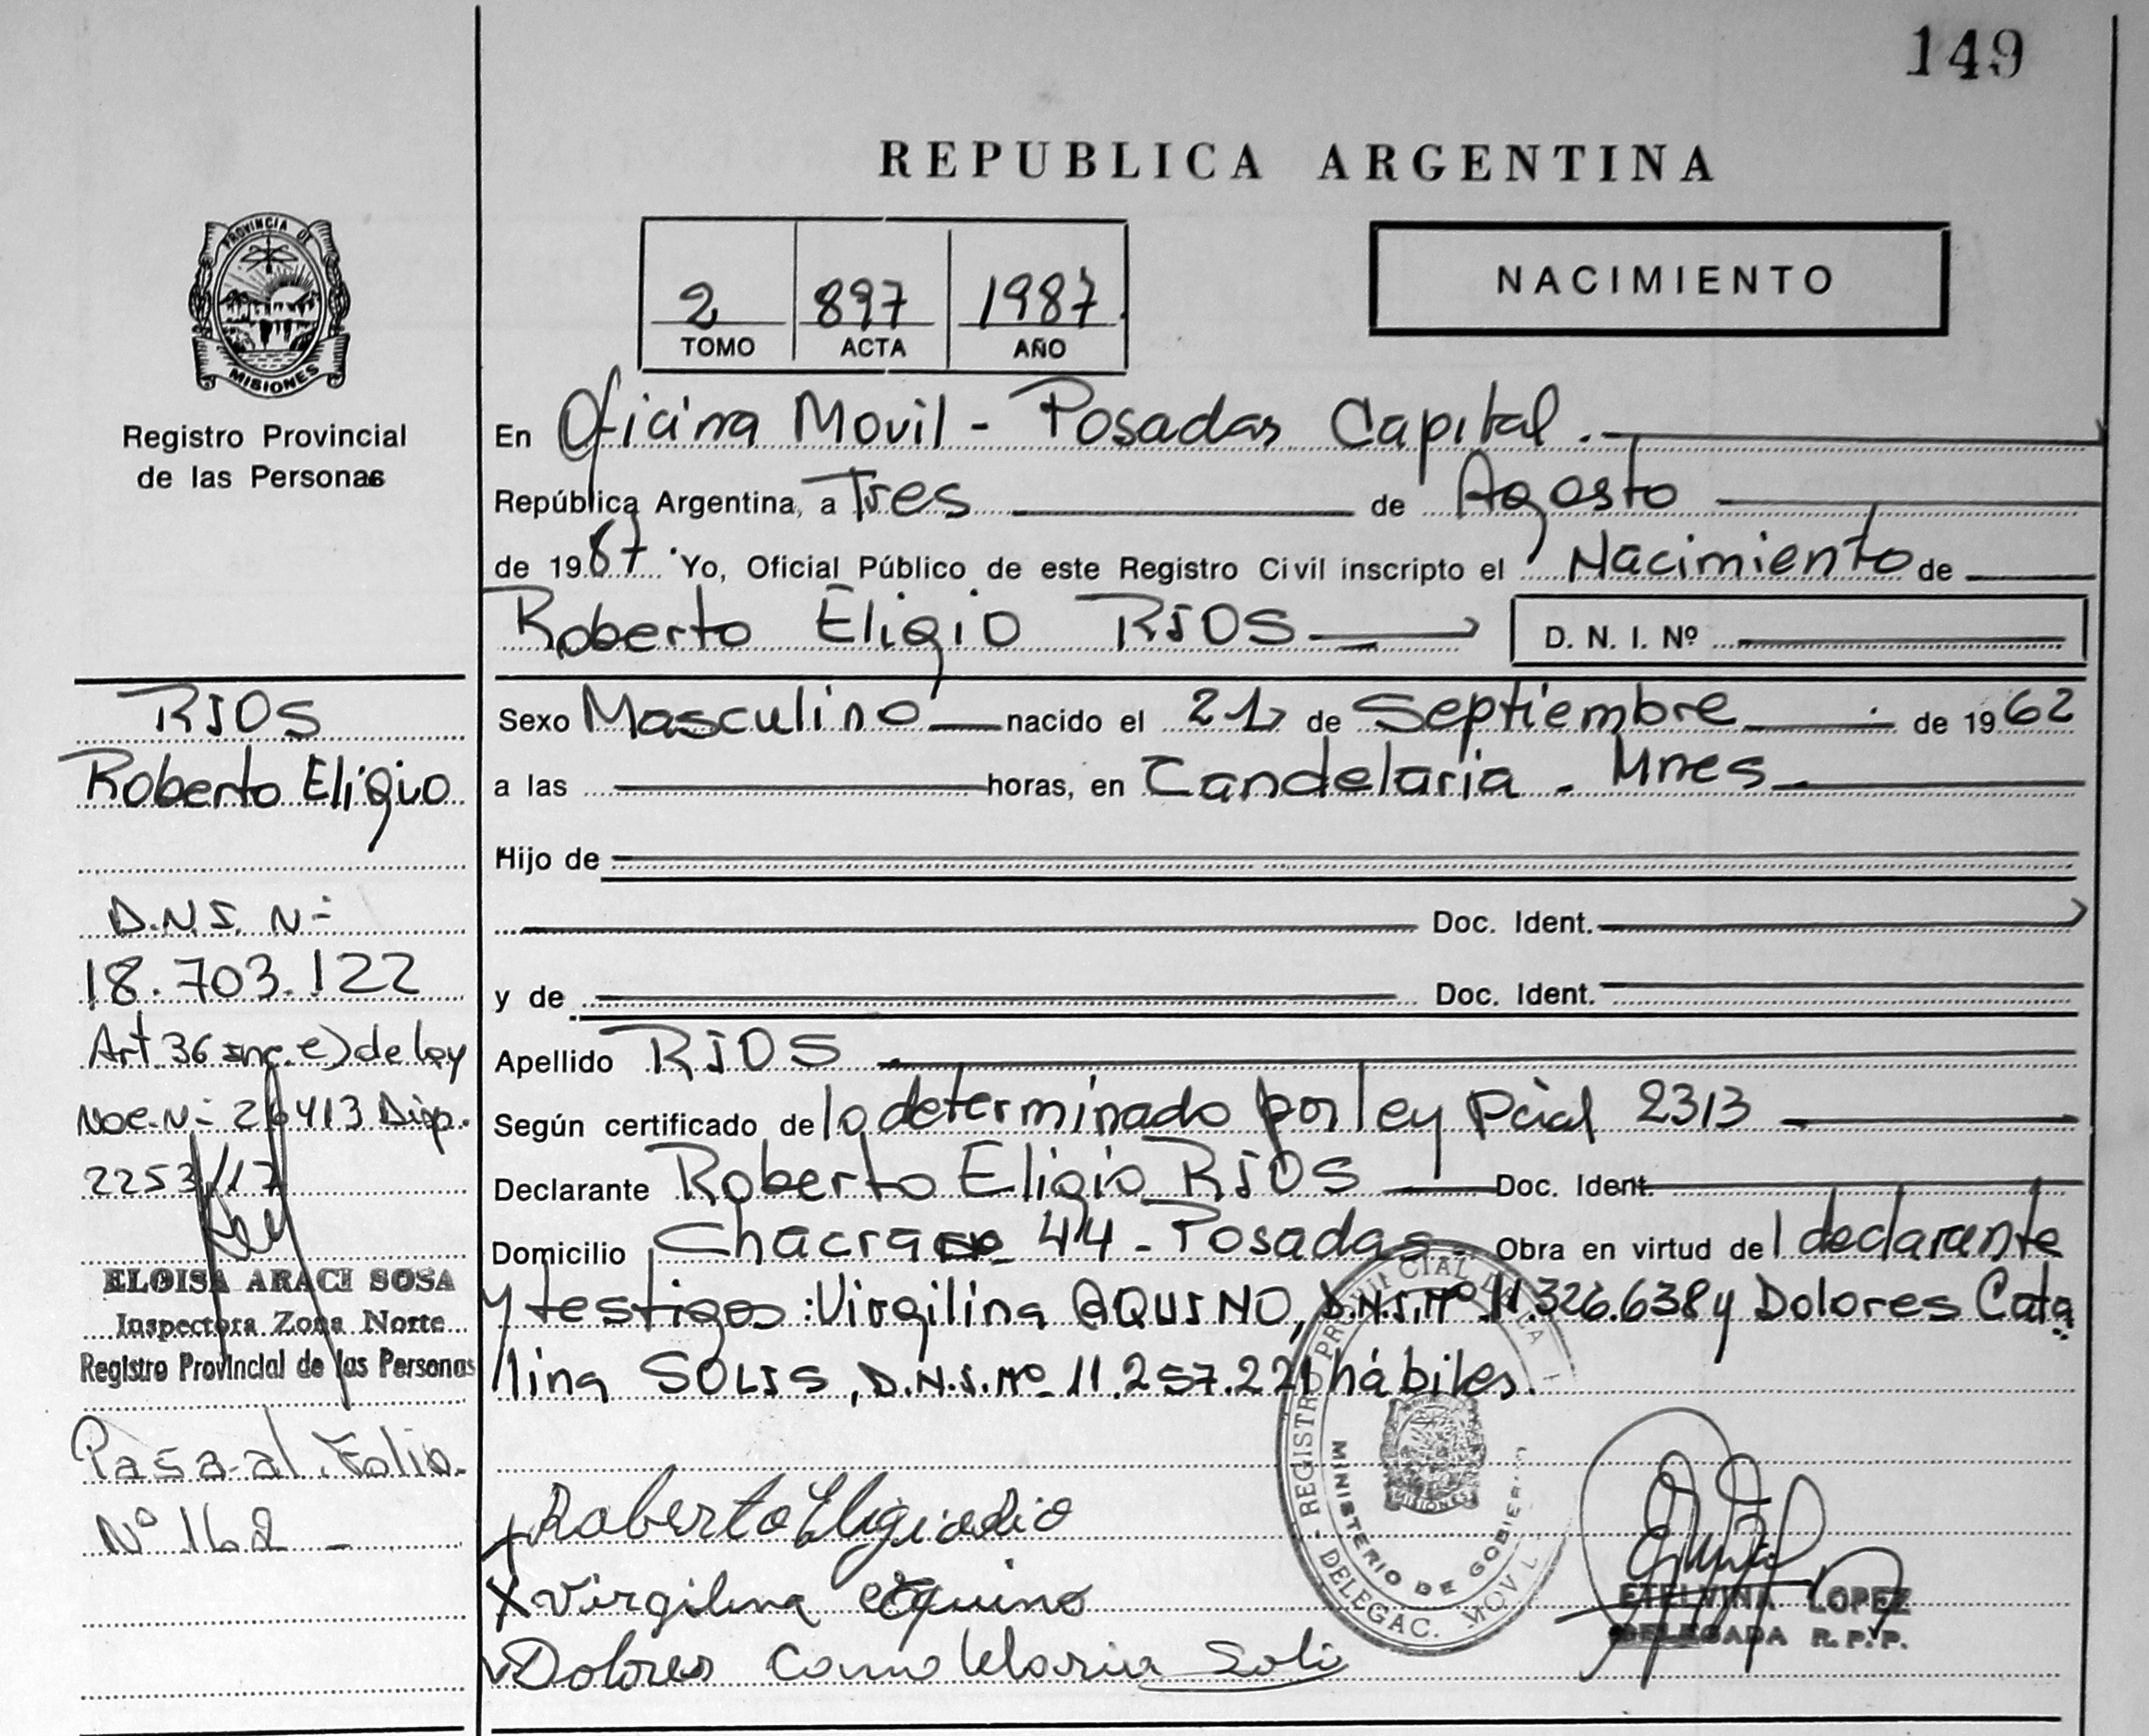 149
REPUBLICA ARGENTINA
PROVINCIA DE
MISIONES
Registro Provincial
de las Personas
2 897 1987
TOMO ACTA AÑO
NACIMIENTO
En Oficina Movil - Posadas Capital.
República Argentina, a Tres de Agosto
de 1987. Yo, Oficial Público de este Registro Civil inscripto el Nacimiento de
Roberto Eligio RIOS D. N. I. Nº
Sexo Masculino nacido el 21 de Septiembre de 1962
a las horas, en Candelaria - Mnes
Hijo de
Doc. Ident.
y de Doc. Ident.
Apellido RIOS
Según certificado de lo determinado por ley Pcial 2313
Declarante Roberto Eligio RIOS Doc. Ident.
Domicilio Chacra 44 - Posadas - Obra en virtud del declarante
y testigos: Virgilina AQUINO, D.N.I. Nº 11.326.638 y Dolores Cata
lina SOLIS, D.N.I. Nº 11.257.221 hábiles.
Roberto Eligio
Virgilina Aquino
Dolores
REGISTRO PROVINCIAL DE LA
MINISTERIO DE GOBIERNO
DELEGAC. MOVIL
MISIONES
ETELVINA LOPEZ
DELEGADA R. P. P.
RIOS
Roberto Eligio
D.N.I. Nº
18.703.122
Art. 36 inc. c) de ley
Nac. Nº 26413 Disp.
2253/17
ELOISA ARACI SOSA
Inspectora Zona Norte
Registro Provincial de las Personas
Pasa al Folio
Nº 162 -